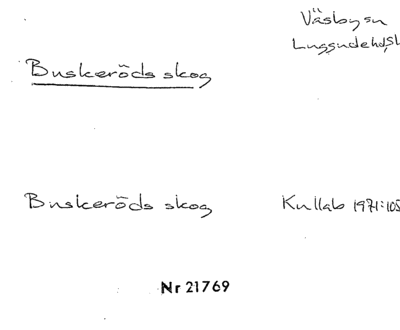 Väsby sn
Luggudehd, Sk
Buskeröds skog
Buskeröds skog Kullab 1971:105
Nr 21769